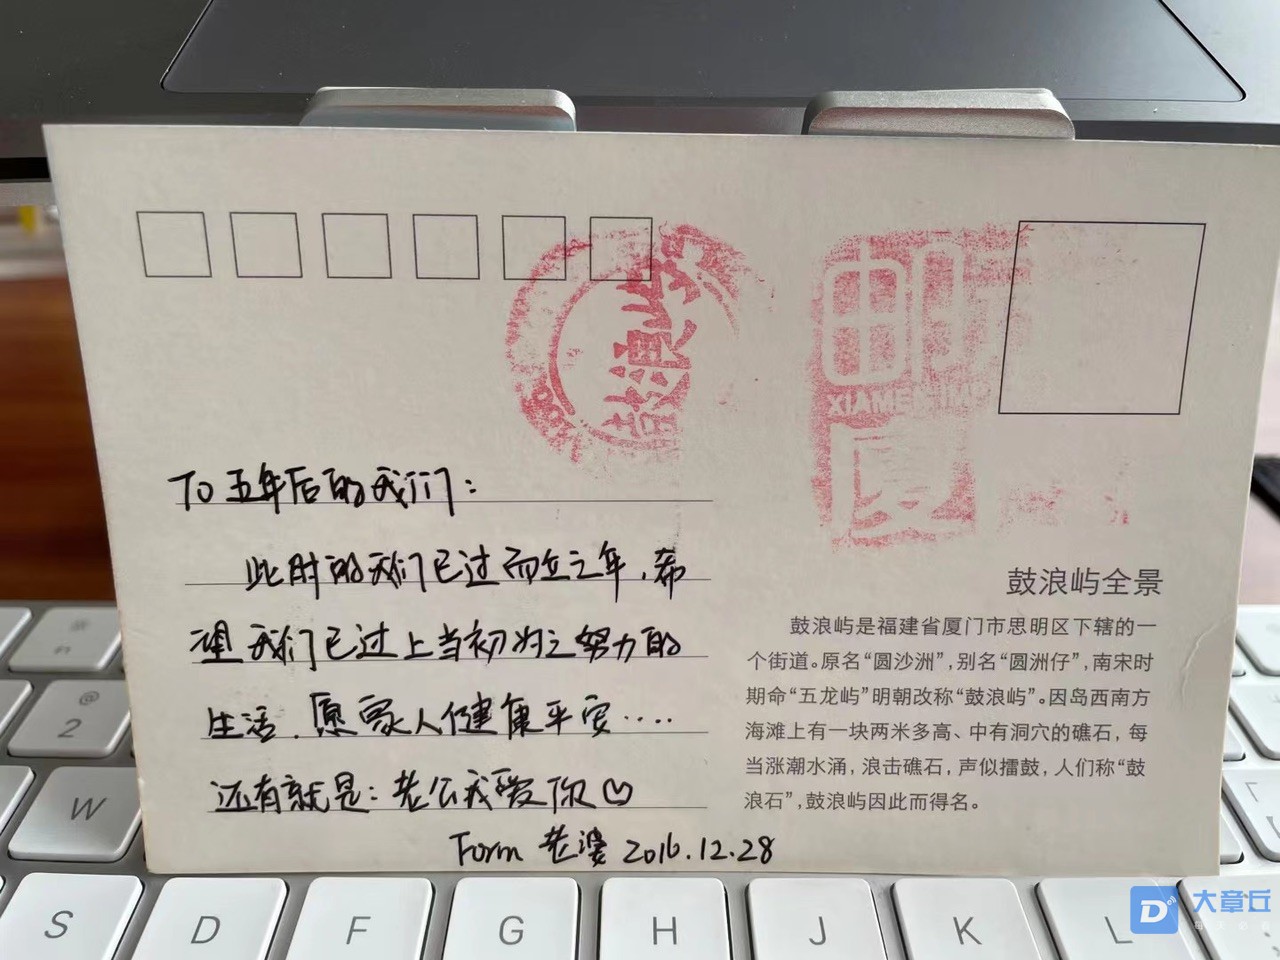 鼓浪屿
邮
XIAMEN
厦
To 五年后的我们：
此时的我们已过而立之年，希
望我们已过上当初为之努力的
生活，愿家人健康平安····
还有就是：老公我爱你♡
Form 老婆 2016.12.28
鼓浪屿全景
鼓浪屿是福建省厦门市思明区下辖的一
个街道。原名“圆沙洲”，别名“圆洲仔”，南宋时
期命“五龙屿”明朝改称“鼓浪屿”。因岛西南方
海滩上有一块两米多高、中有洞穴的礁石，每
当涨潮水涌，浪击礁石，声似擂鼓，人们称“鼓
浪石”，鼓浪屿因此而得名。
@
2
W
S
D
F
G
H
J
K
L
D 大章丘